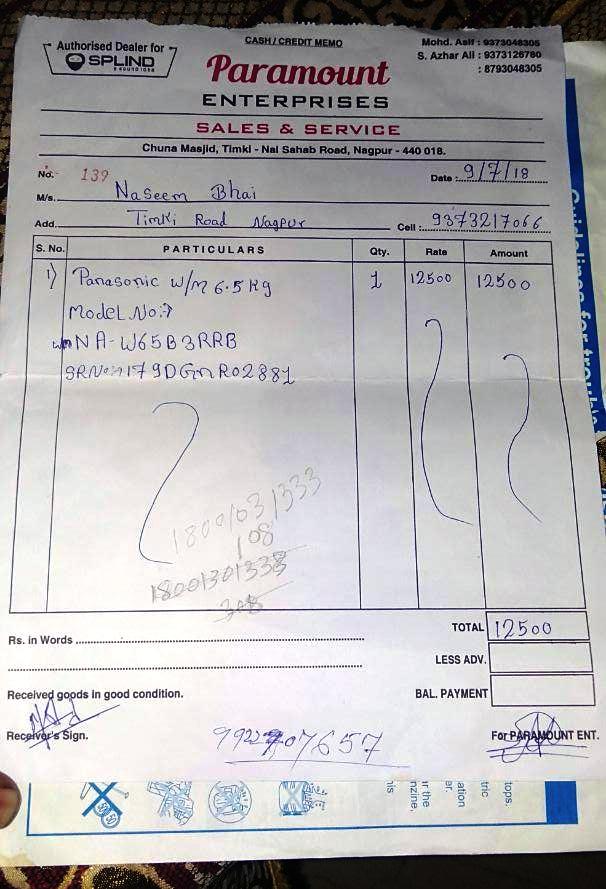 Authorised Dealer for
SPLIND
CASH / CREDIT MEMO
Mohd. Asif : 9373048305
S. Azhar Ali : 9373126780
: 8793048305
Paramount
ENTERPRISES
SALES & SERVICE
Chuna Masjid, Timki - Nal Sahab Road, Nagpur - 440 018.
No. 139
Date : 9/7/18
M/s. Naseem Bhai
Add. Timki Road Nagpur Cell : 9373217066
S. No. PARTICULARS Qty. Rate Amount
1) Panasonic W/M 6.5 Kg 1 12500 12500
Model No:
NA-W65B3RRB
18001031333
108
18001301333
TOTAL 12500
Rs. in Words
LESS ADV.
Received goods in good condition.
BAL. PAYMENT
Receiver's Sign.
For PARAMOUNT ENT.
Guidelines for
tops.
tric
ation
er.
ir the
nzine,